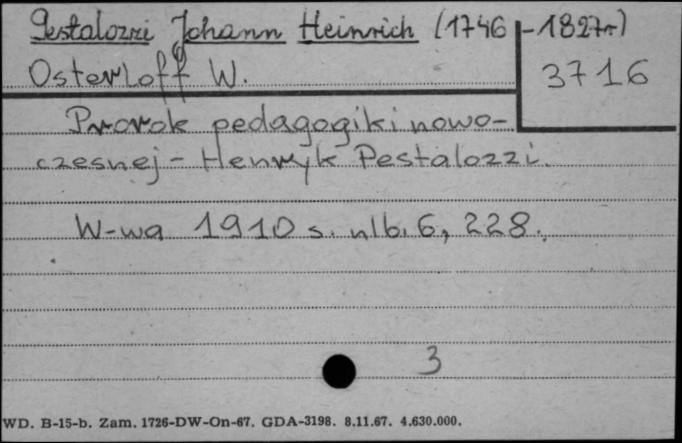 Pestalozzi Johann Heinrich (1746-1827r)
Osterloff W.
3716
Prorok pedagogiki nowo-
czesnej - Henryk Pestalozzi.
W-wa 1910 s. nlb. 6, 228.
3
WD. B-15-b. Zam. 1726-DW-On-67. GDA-3198. 8.11.67. 4.630.000.